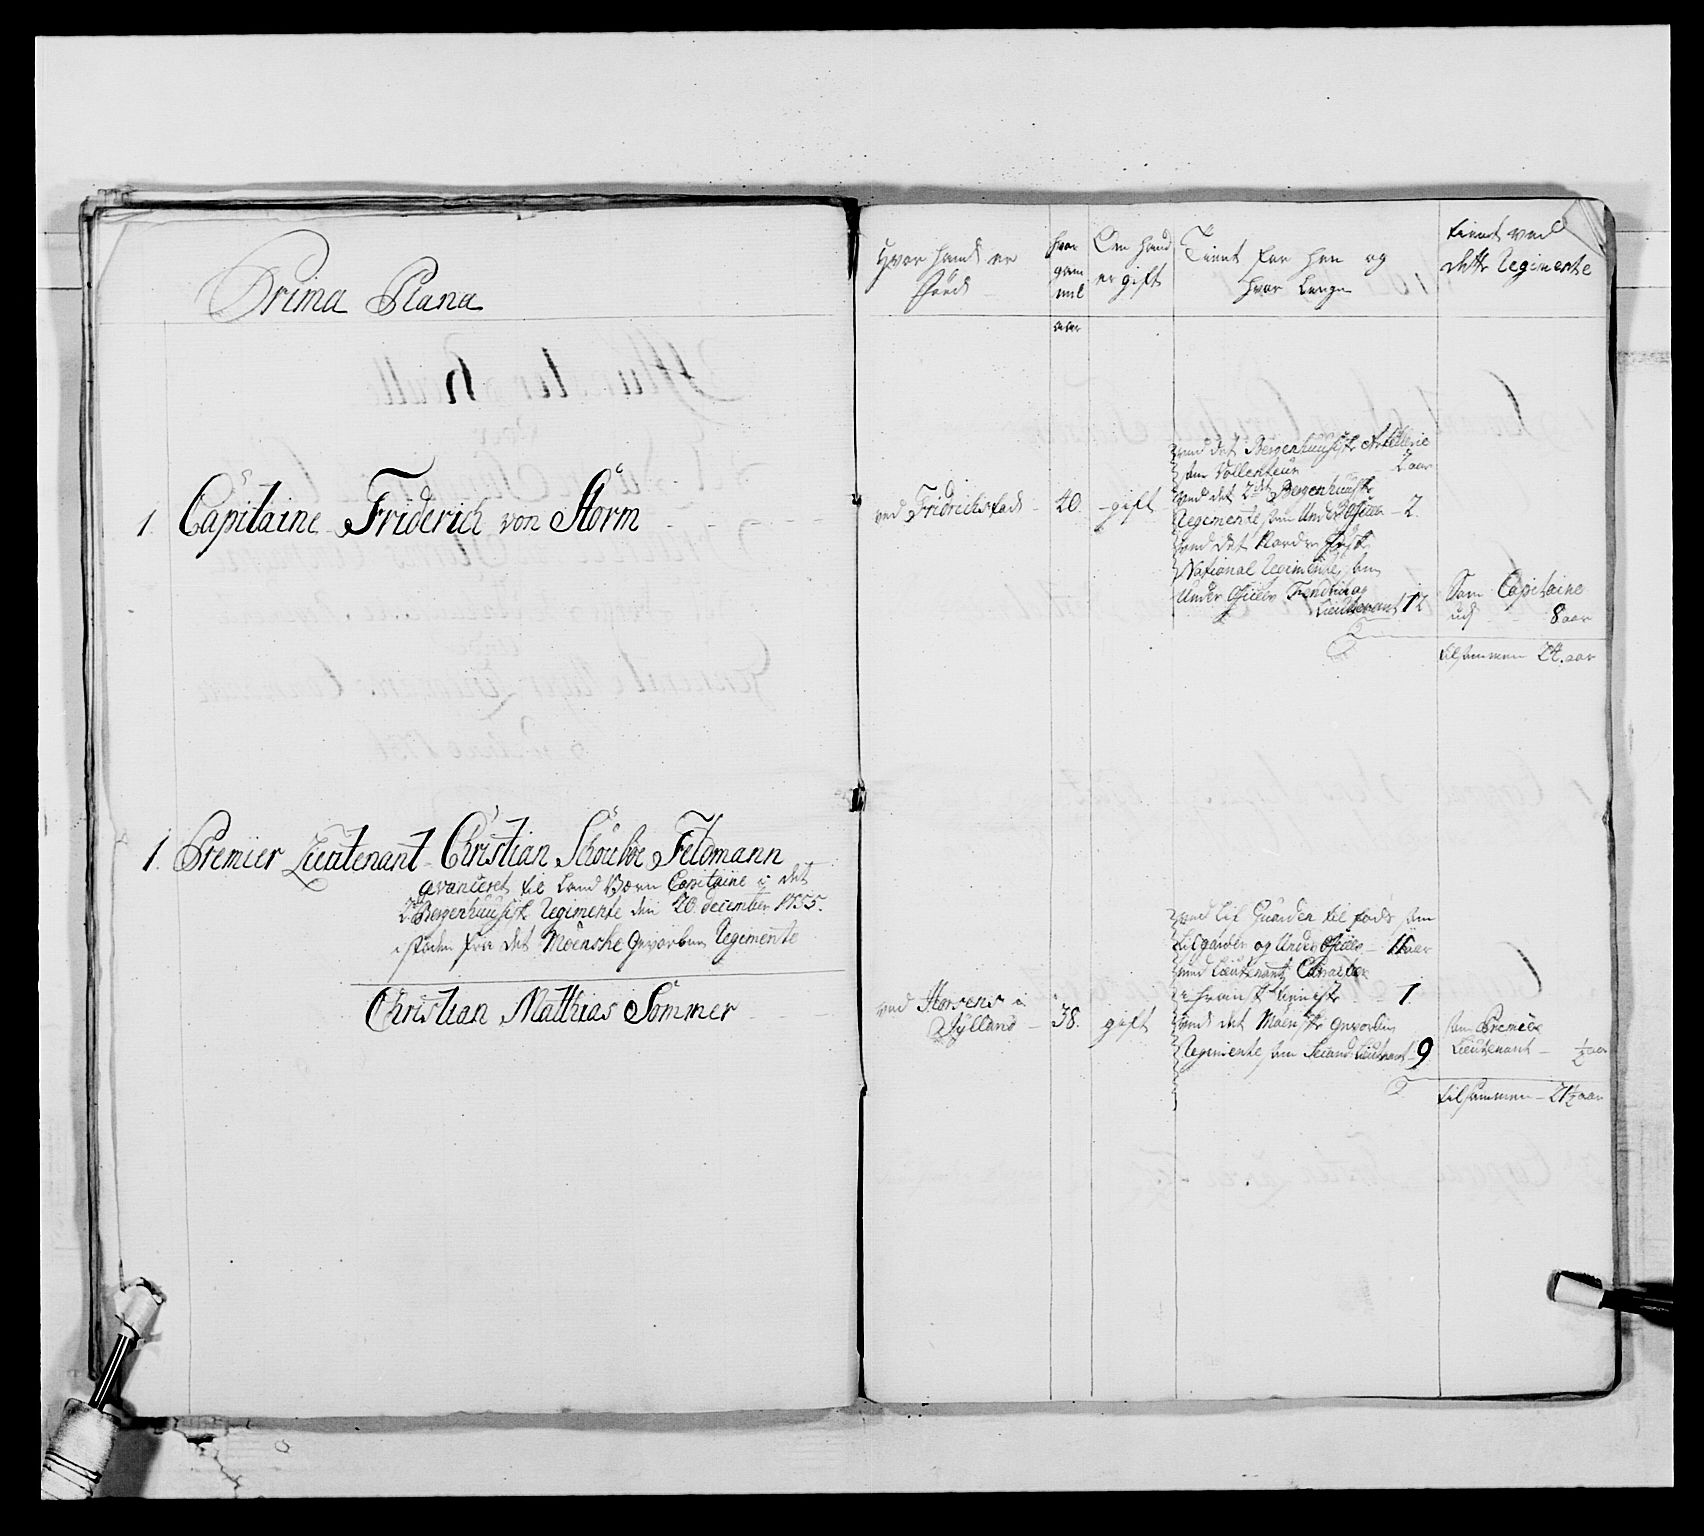 Prima Plana
1. Capitaine Friderich von Storm
1. Premier Lieutenant Christian Schoubøe Feldmann
avanceret til Land Værn Capitaine i det
2det Bergenhuusisk Regimente den 20. december 1755.
i stæden fra det Møenske gevorbne Regimente
Christian Matthias Sommer
Hvor hand er
fød
hvor
gam
mel
aar
Om hand
er gift
Tient før hen og
hvor længe
tient ved
dette Regimente
ved Fridrichstad
40.
gift
ved det Bergenhuusisk Artillerie
som Vollenteur 2 aar
ved det 2det Bergenhuusk
Regimente, som Under Officer - 2.
ved det Nordre
National Regimente, som
Under Officer, Fendrich og
Lieutenant 12
Som Capitaine
ud 8 aar
tilsammen 24. aar
ved Horsens i
Jylland
38.
gift
ved Lif Guarden til fods, som
Lifgarder og Under Officer - 11 aar
med Lieutenants Caracter
i Fransk tienniste 1
ved det Møenske gevorbne
Regimente, som Second Lieutenant - 9
som Premier
Lieutenant - ½ aar
tilsammen - 21½ aar